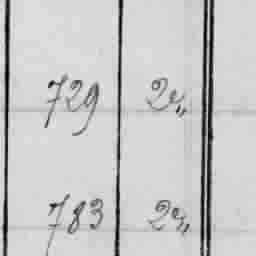 729 2„
783 2„